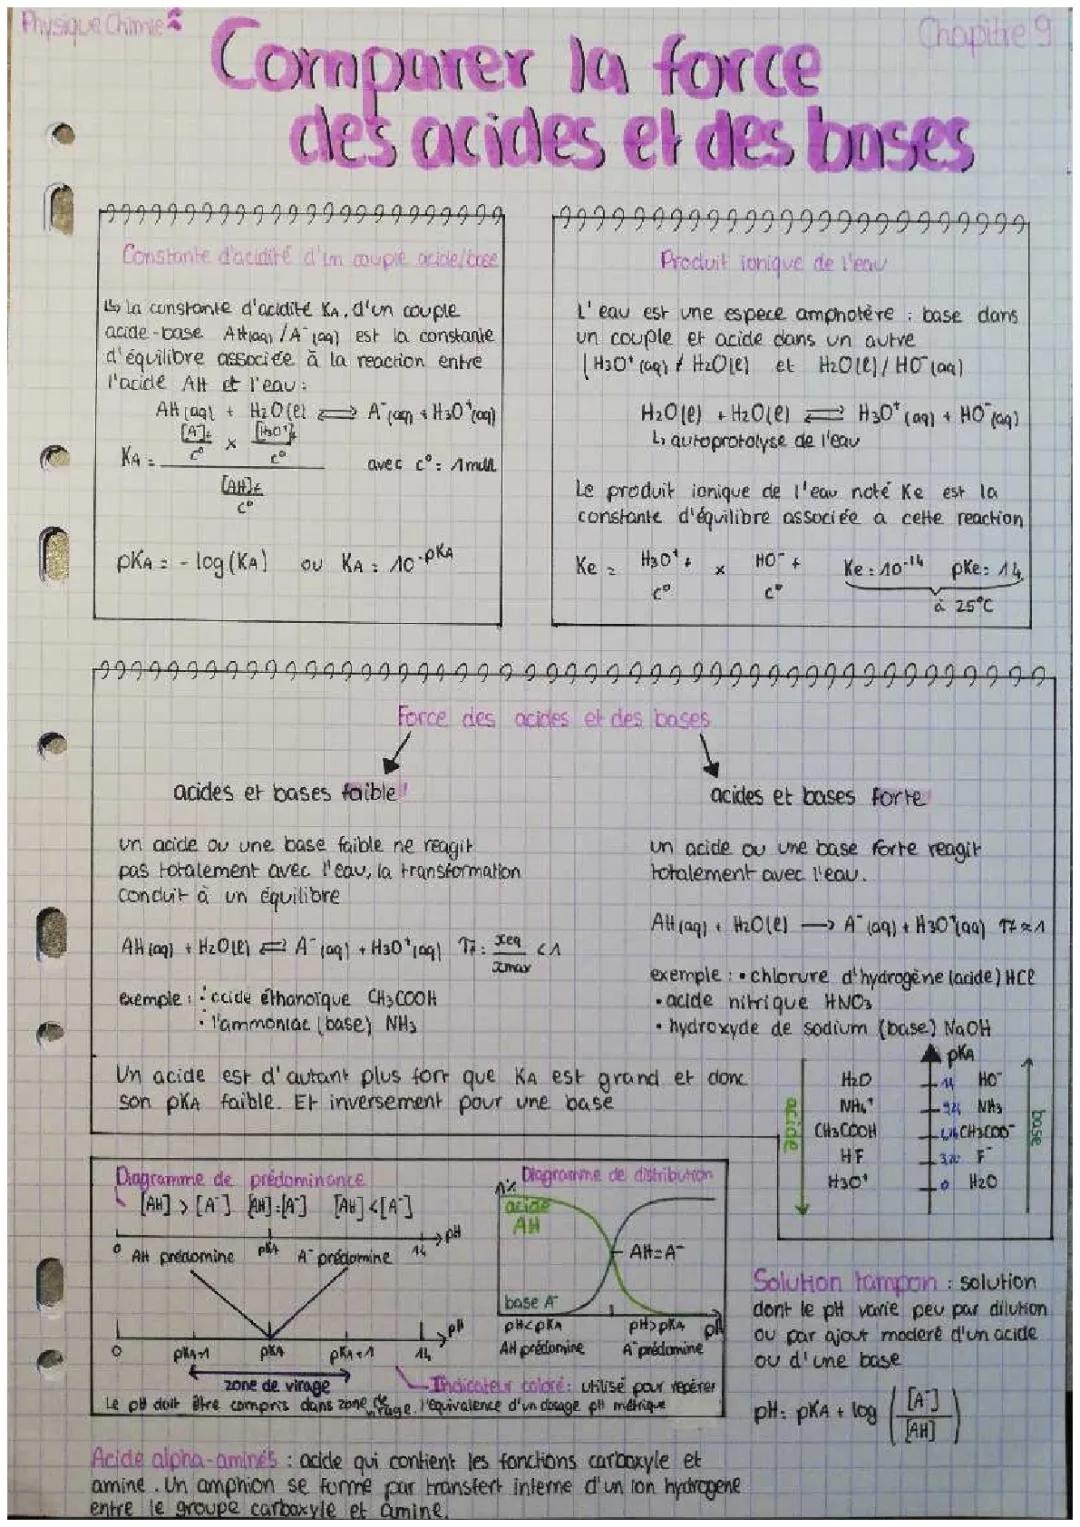 Physique Chimie
Chapitre 9
Comparer la force
des acides et des bases
Constante d'acidité d'un couple acide/base
↳ la constante d'acidité KA, d'un couple
acide-base AH(aq) / A⁻(aq) est la constante
d'équilibre associée à la reaction entre
l'acide AH et l'eau :
AH(aq) + H2O(l) ⇌ A⁻(aq) + H3O⁺(aq)
KA = ([A⁻]f / c° × [H3O⁺]f / c°) / ([AH]f / c°) avec c° = 1 mol/L
pKA = - log (KA) ou KA = 10^-pKA
Produit ionique de l'eau
L'eau est une espece amphotère : base dans
un couple et acide dans un autre
(H3O⁺(aq) / H2O(l) et H2O(l) / HO⁻(aq)
H2O(l) + H2O(l) ⇌ H3O⁺(aq) + HO⁻(aq)
↳ autoprotolyse de l'eau
Le produit ionique de l'eau noté Ke est la
constante d'équilibre associée a cette reaction
Ke = H3O⁺f / c° × HO⁻f / c° Ke = 10⁻¹⁴ pKe = 14
à 25°C
Force des acides et des bases
acides et bases faible
un acide ou une base faible ne reagit
pas totalement avec l'eau, la transformation
conduit à un équilibre
AH(aq) + H2O(l) ⇌ A⁻(aq) + H3O⁺(aq) τ = xeq / xmax < 1
exemple : • acide éthanoïque CH3COOH
• l'ammoniac (base) NH3
Un acide est d'autant plus fort que KA est grand et donc
son pKA faible. Et inversement pour une base
acides et bases forte
un acide ou une base forte reagit
totalement avec l'eau.
AH(aq) + H2O(l) → A⁻(aq) + H3O⁺(aq) τ ≈ 1
exemple : • chlorure d'hydrogène (acide) HCl
• acide nitrique HNO3
• hydroxyde de sodium (base) NaOH
pKA
H2O 14 HO⁻
NH4⁺ NH3
CH3COOH CH3COO⁻
HF 3,20 F⁻
H3O⁺ 0 H2O
acide
base
Diagramme de prédominance
[AH] > [A⁻] [AH] = [A⁻] [AH] < [A⁻]
pH
0 AH prédomine pKA A⁻ prédomine 14
pH
0 pKA-1 pKA pKA+1 14
zone de virage
Indicateur coloré : utilisé pour repérer
l'équivalence d'un dosage pH métrique
Le pH doit être compris dans zone de virage
Diagramme de distribution
acide
AH
AH = A⁻
base A⁻
pH<pKA pH>pKA pH
AH prédomine A⁻ prédomine
Solution tampon : solution
dont le pH varie peu par dilution
ou par ajout moderé d'un acide
ou d'une base
pH = pKA + log ([A⁻] / [AH])
Acide alpha-aminés : acide qui contient les fonctions carboxyle et
amine. Un amphion se forme par transfert interne d'un ion hydrogene
entre le groupe carboxyle et amine.